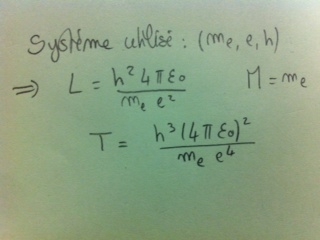 Système utilisé : (me, e, h)
⇒ L = h² 4πε0 / me e² M = me
T = h³ (4πε0)² / me e⁴